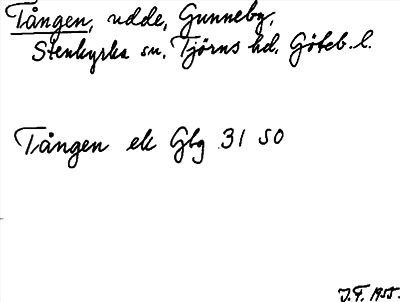 Tången, udde, Gunneby,
Stenkyrka sn, Tjörns hd, Göteb. l.
Tången ek Gbg 31 SO
J.F. 1955.